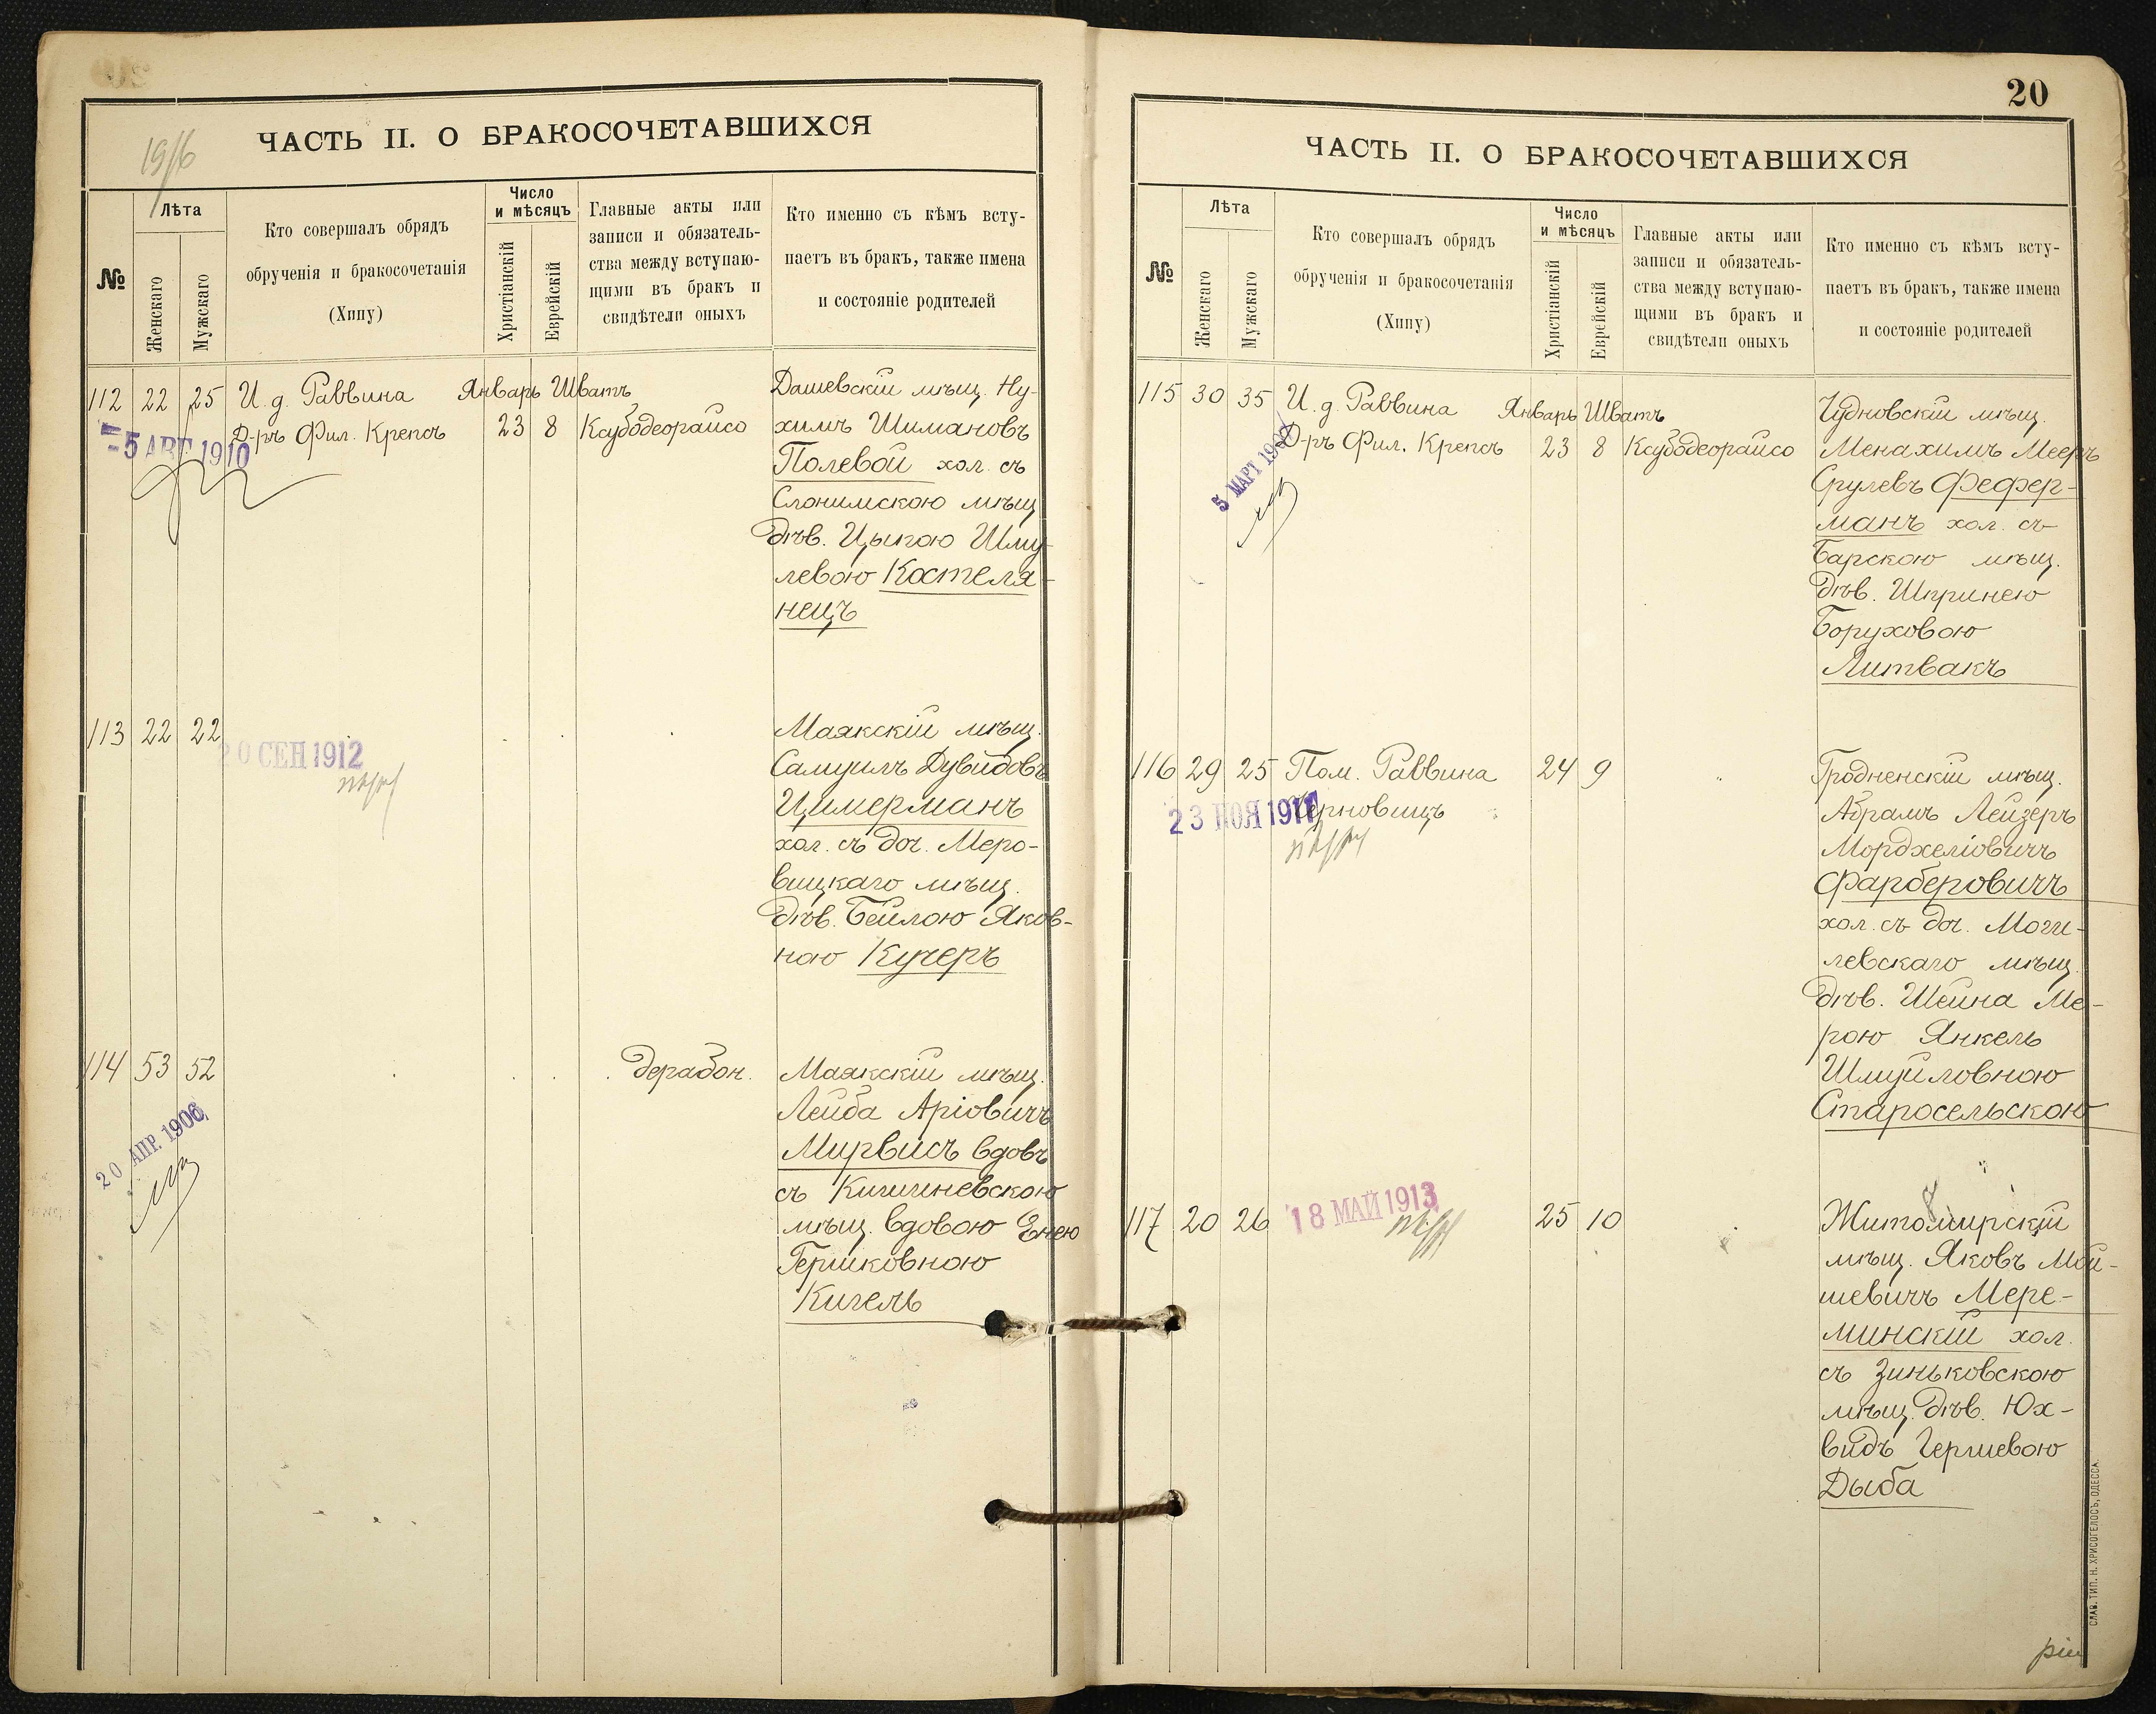 ЧАСТЬ II. О БРАКОСОЧЕТАВШИХСЯ
№
Лѣта
Женскаго
Мужскаго
Кто совершалъ обрядъ
обрученія и бракосочетанія
(Хипу)
Число
и мѣсяцъ
Христіанскій
Еврейскій
Главные акты или
записи и обязатель-
ства между вступаю-
щими въ бракъ и
свидѣтели оныхъ
Кто именно съ кѣмъ всту-
паетъ въ бракъ, также имена
и состояніе родителей
112 22 25 И. д. Раввина Январь Шватъ
Д-ръ Фил. Крепсъ 23 8 Ксубодеорайсо
5 АВГ 1910
Дашевскій мѣщ. Ну-
химъ Шимановъ
Полевой хол. съ
Слонимскою мѣщ
дѣв. Цыпою Шму
левою Костеля-
нецъ
113 22 22
20 СЕН 1912
Маякскій мѣщ.
Самуилъ Дувидовъ
Цимерманъ
хол. съ доч. Меро-
вицкаго мѣщ.
дѣв. Бейлою Яков-
ною Кучеръ
114 53 52 дерабон.
20 АПР. 1906
Маякскій мѣщ.
Лейба Аріовичъ
Мирвисъ вдовъ
съ Кишиневскою
мѣщ. вдовою Енею
Гершковною
Кигель
20
ЧАСТЬ II. О БРАКОСОЧЕТАВШИХСЯ
№
Лѣта
Женскаго
Мужскаго
Кто совершалъ обрядъ
обрученія и бракосочетанія
(Хипу)
Число
и мѣсяцъ
Христіанскій
Еврейскій
Главные акты или
записи и обязатель-
ства между вступаю-
щими въ бракъ и
свидѣтели оныхъ
Кто именно съ кѣмъ всту-
паетъ въ бракъ, также имена
и состояніе родителей
115 30 35 И. д. Раввина Январь Шватъ
Д-ръ Фил. Крепсъ 23 8 Ксубодеорайсо
5 МАРТ
Чудновскій мѣщ.
Менахимъ Мееръ
Срулевъ Фефер-
манъ хол. съ
Барскою мѣщ.
дѣв. Шпринею
Боруховою
Литвакъ
116 29 25 Пом. Раввина 24 9
Черновицъ
23 НОЯ 1911
Гродненскій мѣщ.
Абрамъ Лейзеръ
Мордхеліовичъ
Фарберовичъ
хол. съ доч. Моги-
левскаго мѣщ.
дѣв. Шейна Ме-
рою Янкель
Шмуйловною
Старосельскою
117 20 26 25 10
18 МАЙ 1913
Житомирскій
мѣщ. Яковъ Мой-
шевичъ Мере-
минскій хол.
съ Зиньковскою
мѣщ. дѣв. Юх-
видъ Гершевою
Дыба
СЛАВ. ТИП. Н. ХРИСОГЕЛОСЪ, ОДЕССА.